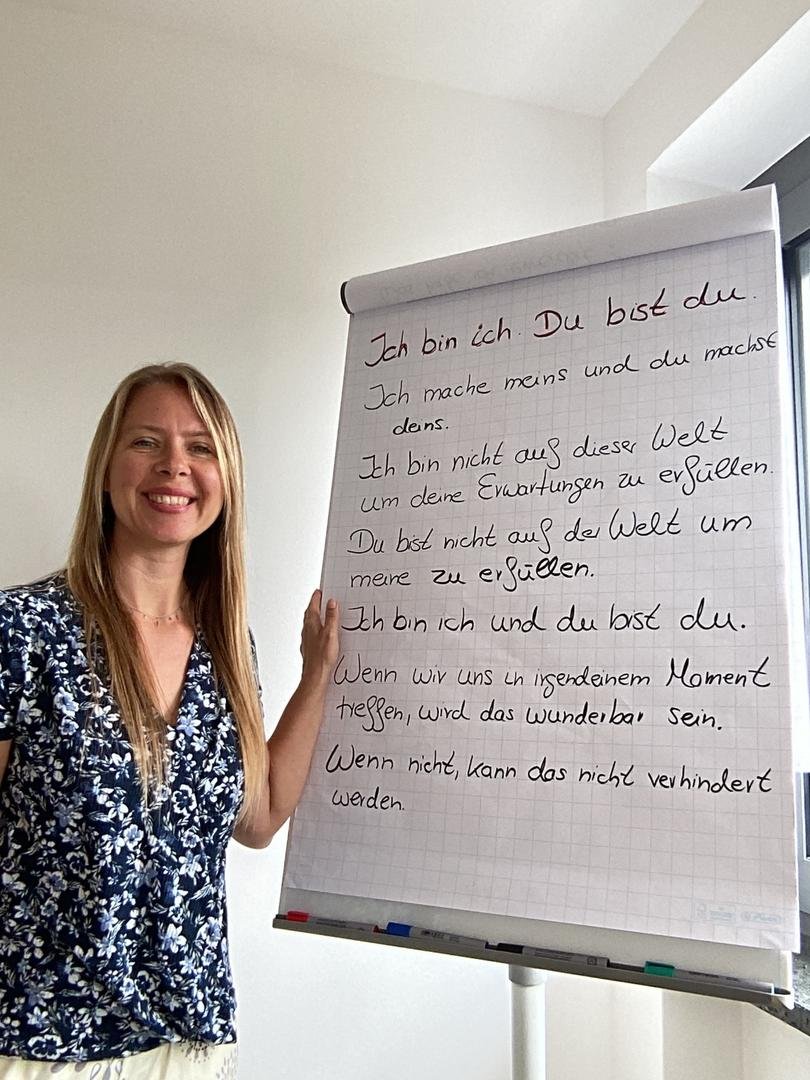 Ich bin ich. Du bist du.
Ich mache meins und du machst
deins.
Ich bin nicht auf dieser Welt
um deine Erwartungen zu erfüllen.
Du bist nicht auf der Welt um
meine zu erfüllen.
Ich bin ich und du bist du.
Wenn wir uns in irgendeinem Moment
treffen, wird das wunderbar sein.
Wenn nicht, kann das nicht verhindert
werden.